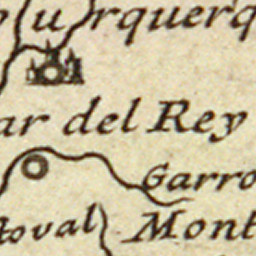 urquerq
ar del Rey
Garro
toval Mont